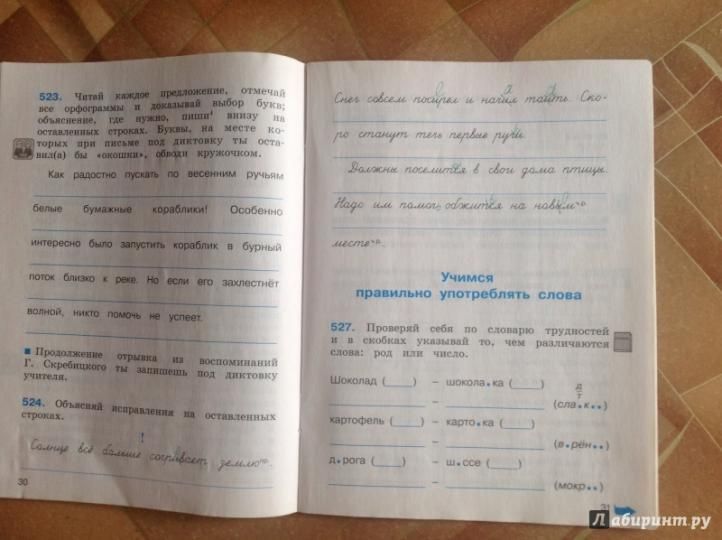 523. Читай каждое предложение, отмечай
все орфограммы и доказывай выбор букв;
объяснение, где нужно, пиши⁴ внизу на
оставленных строках. Буквы, на месте ко-
торых при письме под диктовку ты оста-
вил(а) бы «окошки», обводи кружочком.
Как радостно пускать по весенним ручьям
белые бумажные кораблики! Особенно
интересно было запустить кораблик в бурный
поток близко к реке. Но если его захлестнёт
волной, никто помочь не успеет.
■ Продолжение отрывка из воспоминаний
Г. Скребицкого ты запишешь под диктовку
учителя.
524. Объясняй исправления на оставленных
строках.
!
Солнце всё больше согревает землю
30
Снег совсем посерел и начал таять. Ско-
ро станут течь первые ручьи.
Должны поселиться в свои дома птицы.
Надо им помочь обжиться на новым
месте
Учимся
правильно употреблять слова
527. Проверяй себя по словарю трудностей
и в скобках указывай то, чем различаются
слова: род или число.
Шоколад (____) – шокола•ка (____)
д/т
____ – ____ (сла•к••)
картофель (____) – карто•ка (____)
____ – ____ (в•рён••)
д•рога (____) – ш•ссе (____)
____ – ____ (мокр••)
31
Лабиринт.ру